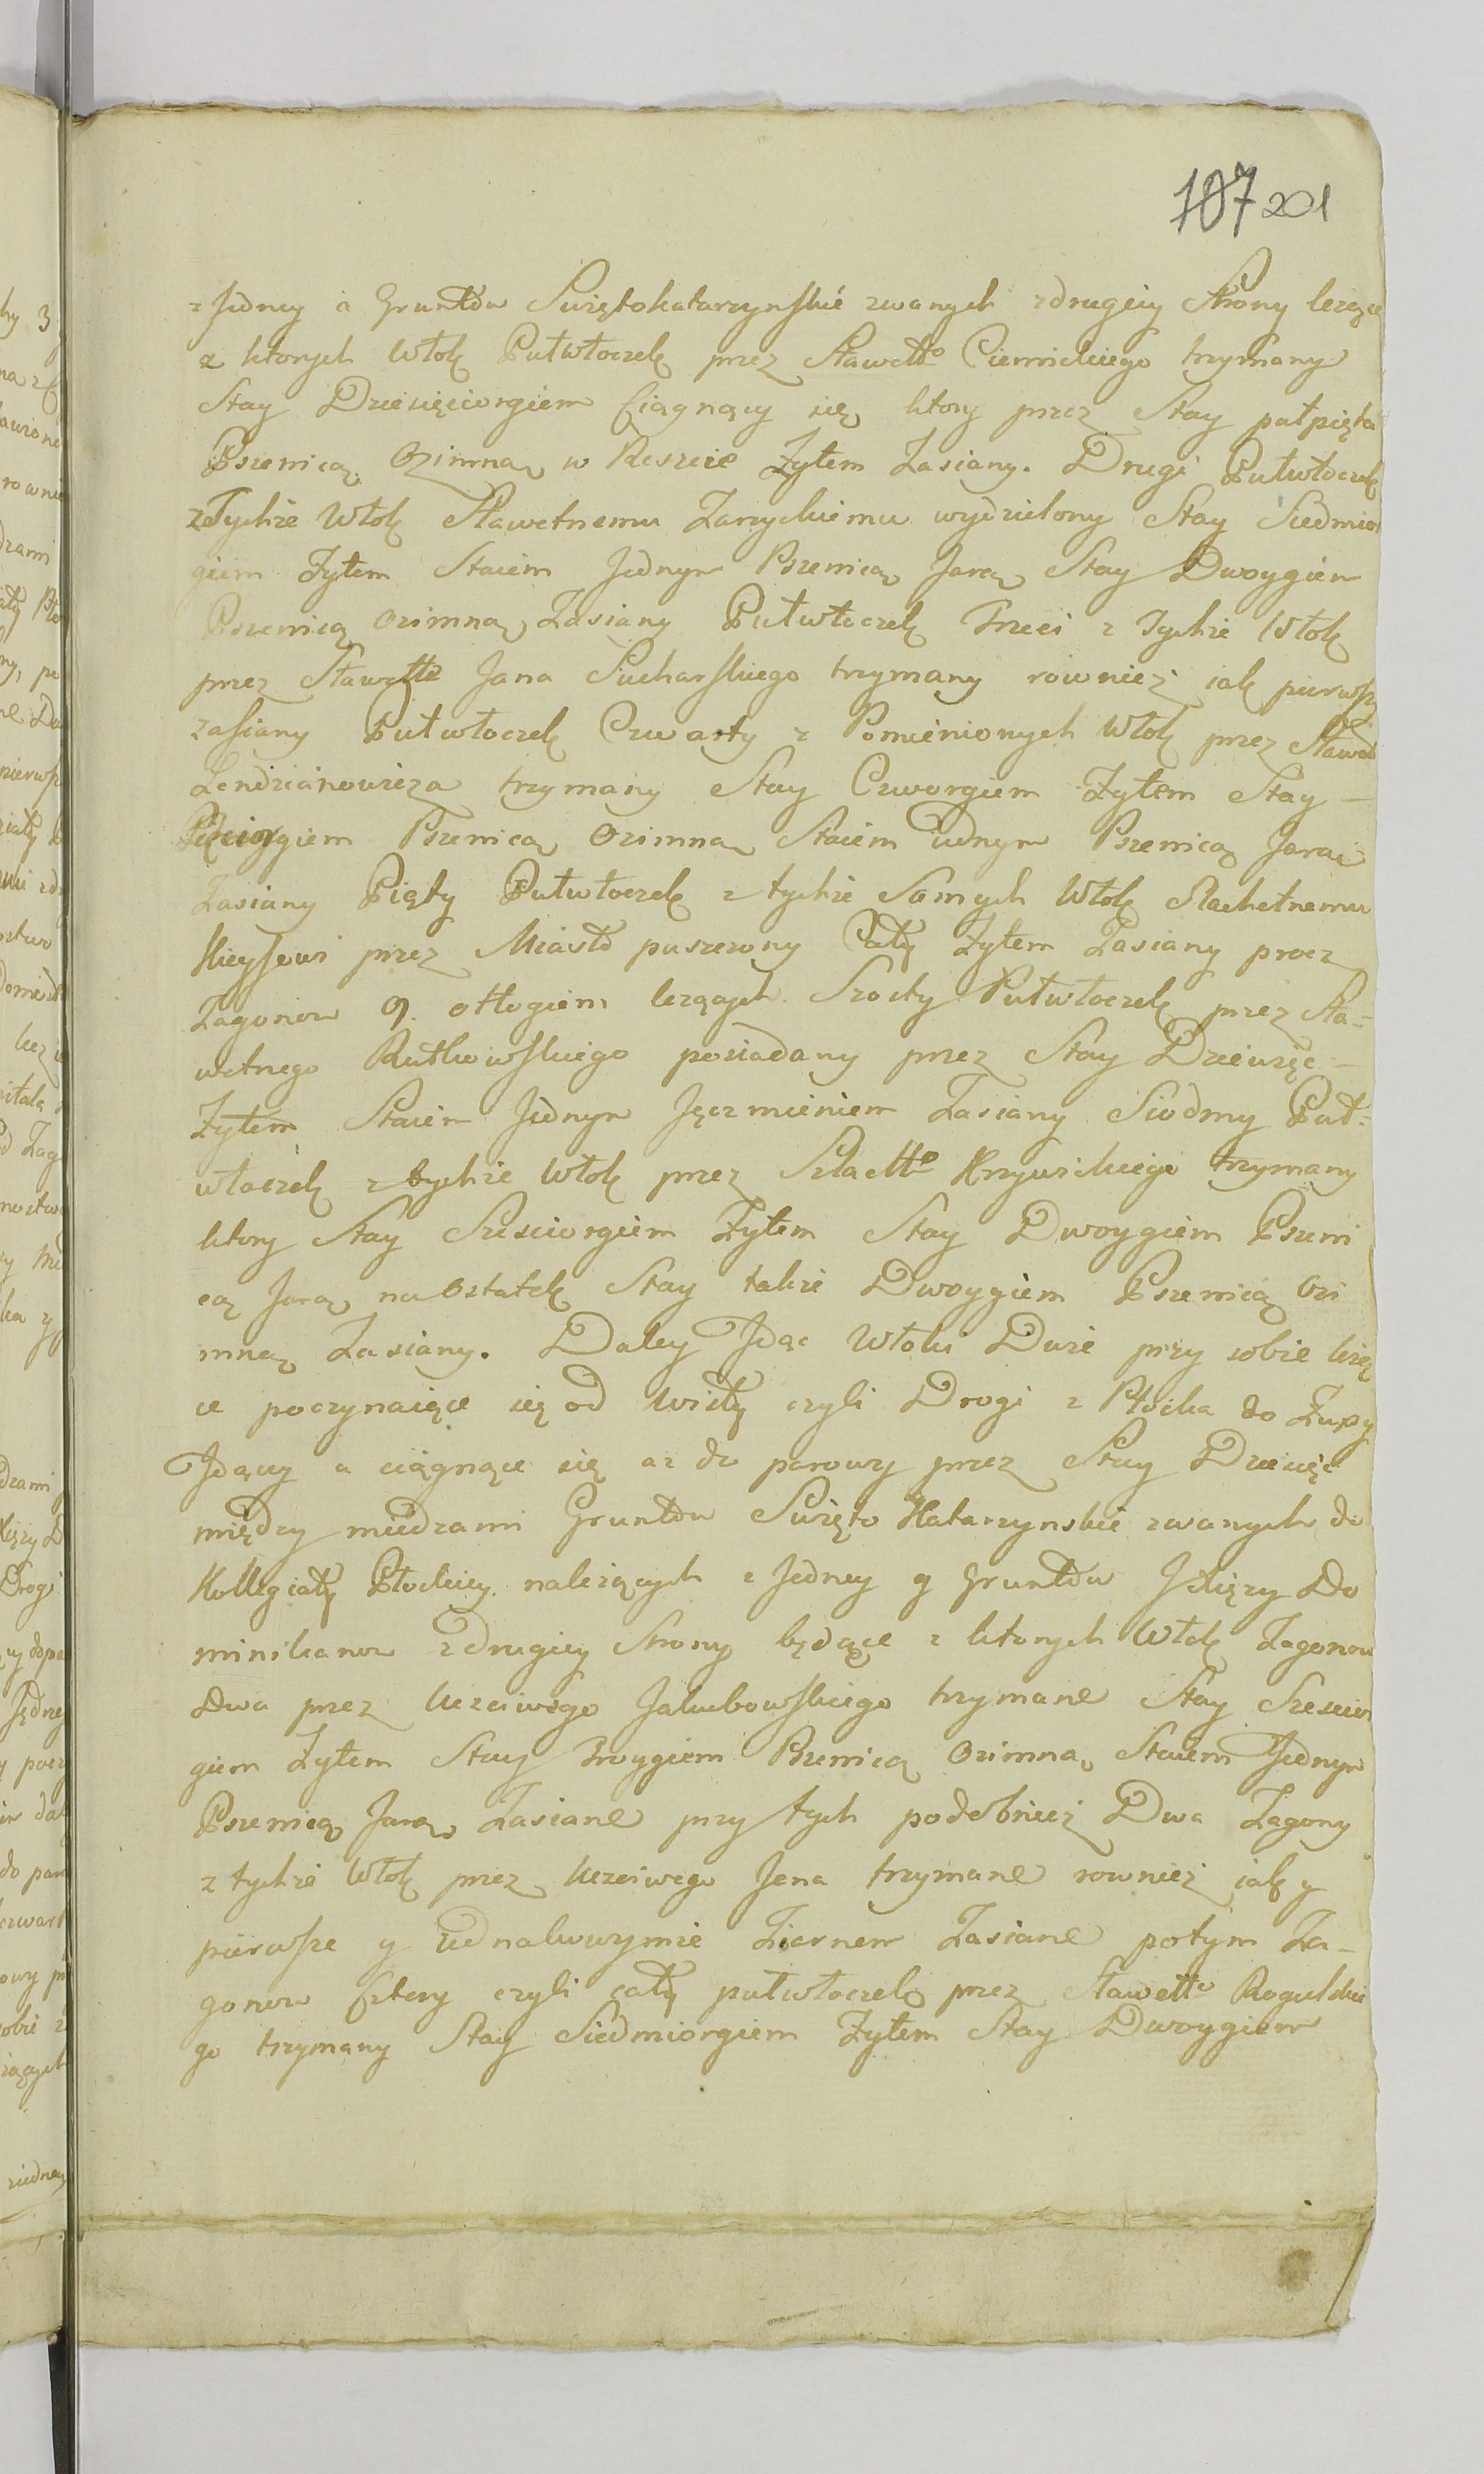 107 201
z Jedney a Gruntow Swiętokatarzynskie zwanych zdrugiey Strony leżące
z ktorych Włok Pułwłoczek przez Sławettº Ciemnickiego trzymany
Stay Dziesięciorgiem Ciągnący się ktory przez Stay pałpięta
Pszenicą Ozimną w Reszcie Zytem Zasiany. Drugi Pułwłoczek
z Tychże Włok Sławetnemu Zarzyckiemu wydzielony Stay Siedmior
giem Zytem Staiem Jednym Pszenicą Jarą Stay Dwoygiem
Pszenicą Ozimną Zasiany Pułwłoczek Trzeci z Tychże Włok
przez Sławettº Jana Sucharskiego trzymany rownież iak pierwszy
zasiany Pułwłoczek Czwarty z Pomienionych Włok przez Sławet
Lendzianowicza trzymany Stay Czworgiem Zytem Stay –
Pięciorgiem Pszenicą Ozimną Staiem iednym Pszenicą Jarą
Zasiany Piąty Pułwłoczek z tychże Samych Włok Slachetnemu
przez Miasto puszczony Cały Zytem Zasiany procz
Zagonow 9. odłogiem leżących Szosty Pułwłoczek przez Sła=
wetnego Rutkowskiego posiadany przez Stay Dziewięc –
Zytem Staiem Jednym Jęczmieniem Zasiany Siodmy Puł=
włoczek z tychże Włok przez Szlacttº Krzywickiego trzymany
ktory Stay Szesciorgiem Zytem Stay Dwoygiem Pszeni
cą Jarą na Ostatek Stay także Dwoygiem Pszenicą Ozi
mną Zasiany. Daley Jdąc Włoki Duże przy sobie leżą
ce poczynaiące się od Wisły czyli Drogi z Płocka do Łupy
Jdącey a ciągnące się aż do parowy przez Stay Dziesięc
między miedzami Gruntow Swięto Katarzynskie zwanych do
Kollegiaty Płockiey należących z Jedney y Gruntow JXięzy Do
minikanow zdrugiey Strony będące z ktorych Włok Zagonow
Dwa przez Uczciwego Jakubowskiego trzymane Stay Szescior
giem Zytem Stay Troygiem Pszenicą Ozimną Staiem Jednym
Pszenicą Jarą Zasiane przy tych podobnież Dwa Zagony
z tychże Włok przez Uczciwego Jana trzymane rownież iak y
pierwsze y iednakowymże Ziarnem Zasiane potym Za-
gonow Cztery czyli cały pułwłoczek przez Sławettº Rogulskie
go trzymany Stay Siedmiorgiem Zytem Stay Dwoygiem